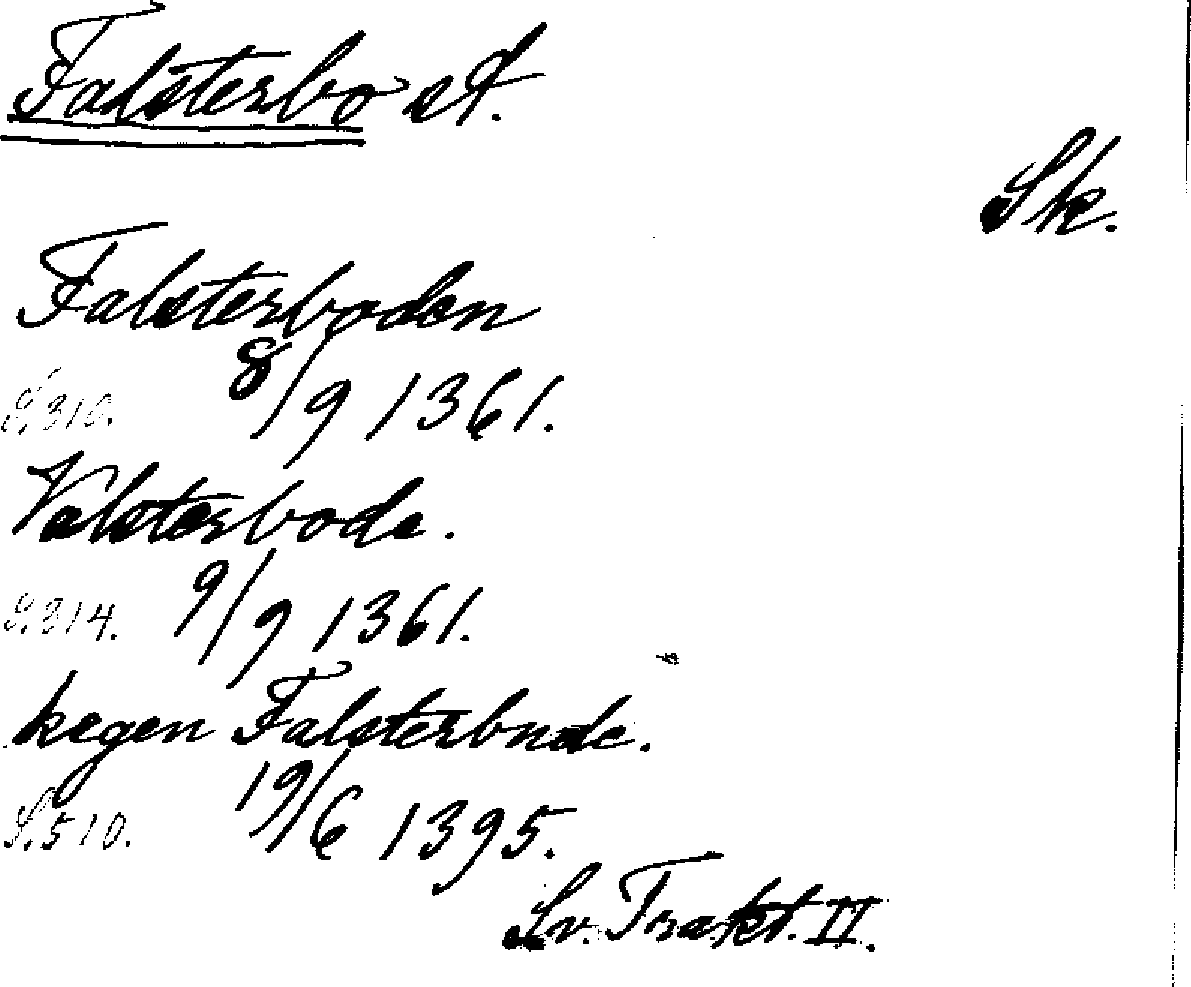 Falsterbo st.
Sk.
Falsterboden
S. 310. 8/9 1361.
Valsterbode.
S. 314. 9/9 1361.
kegen Falsterbude.
S. 510. 19/6 1395.
Sv. Trakt. II.